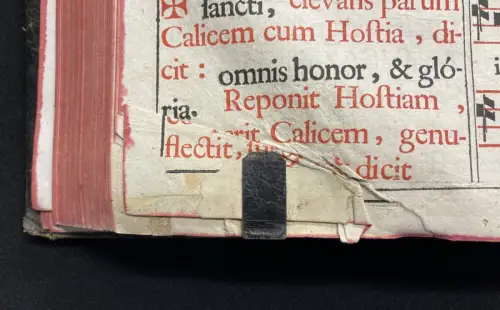 ✠ ſancti, elevans parum
Calicem cum Hoſtia , di-
cit : omnis honor, & gló-
ria. Reponit Hoſtiam ,
Calicem, genu-
flectit, dicit